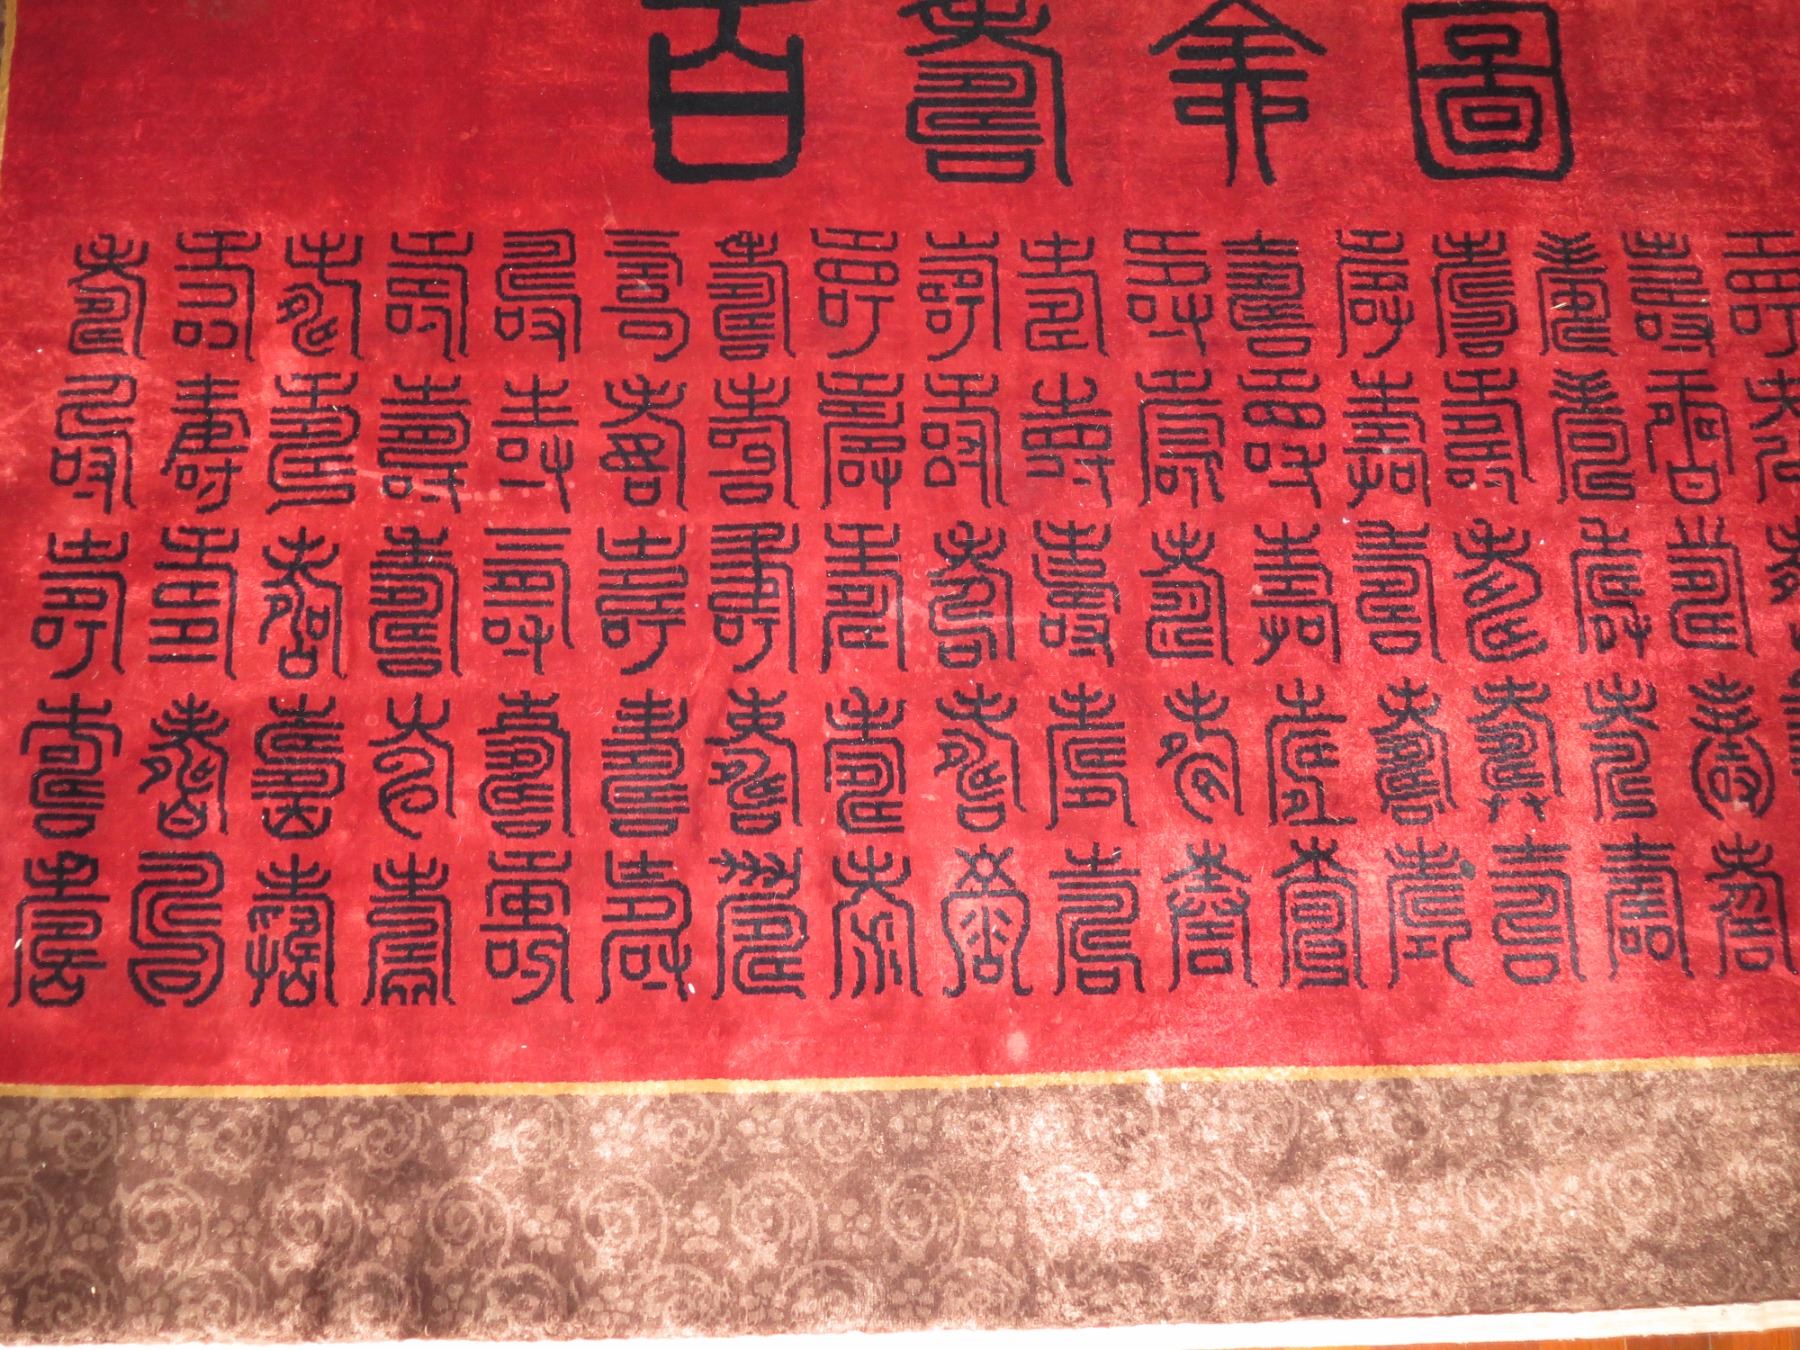 百壽圖
壽壽壽壽壽壽壽壽壽壽壽壽壽壽壽壽壽
壽壽壽壽壽壽壽壽壽壽壽壽壽壽壽壽
壽壽壽壽壽壽壽壽壽壽壽壽壽壽壽壽
壽壽壽壽壽壽壽壽壽壽壽壽壽壽壽壽
壽壽壽壽壽壽壽壽壽壽壽壽壽壽壽壽